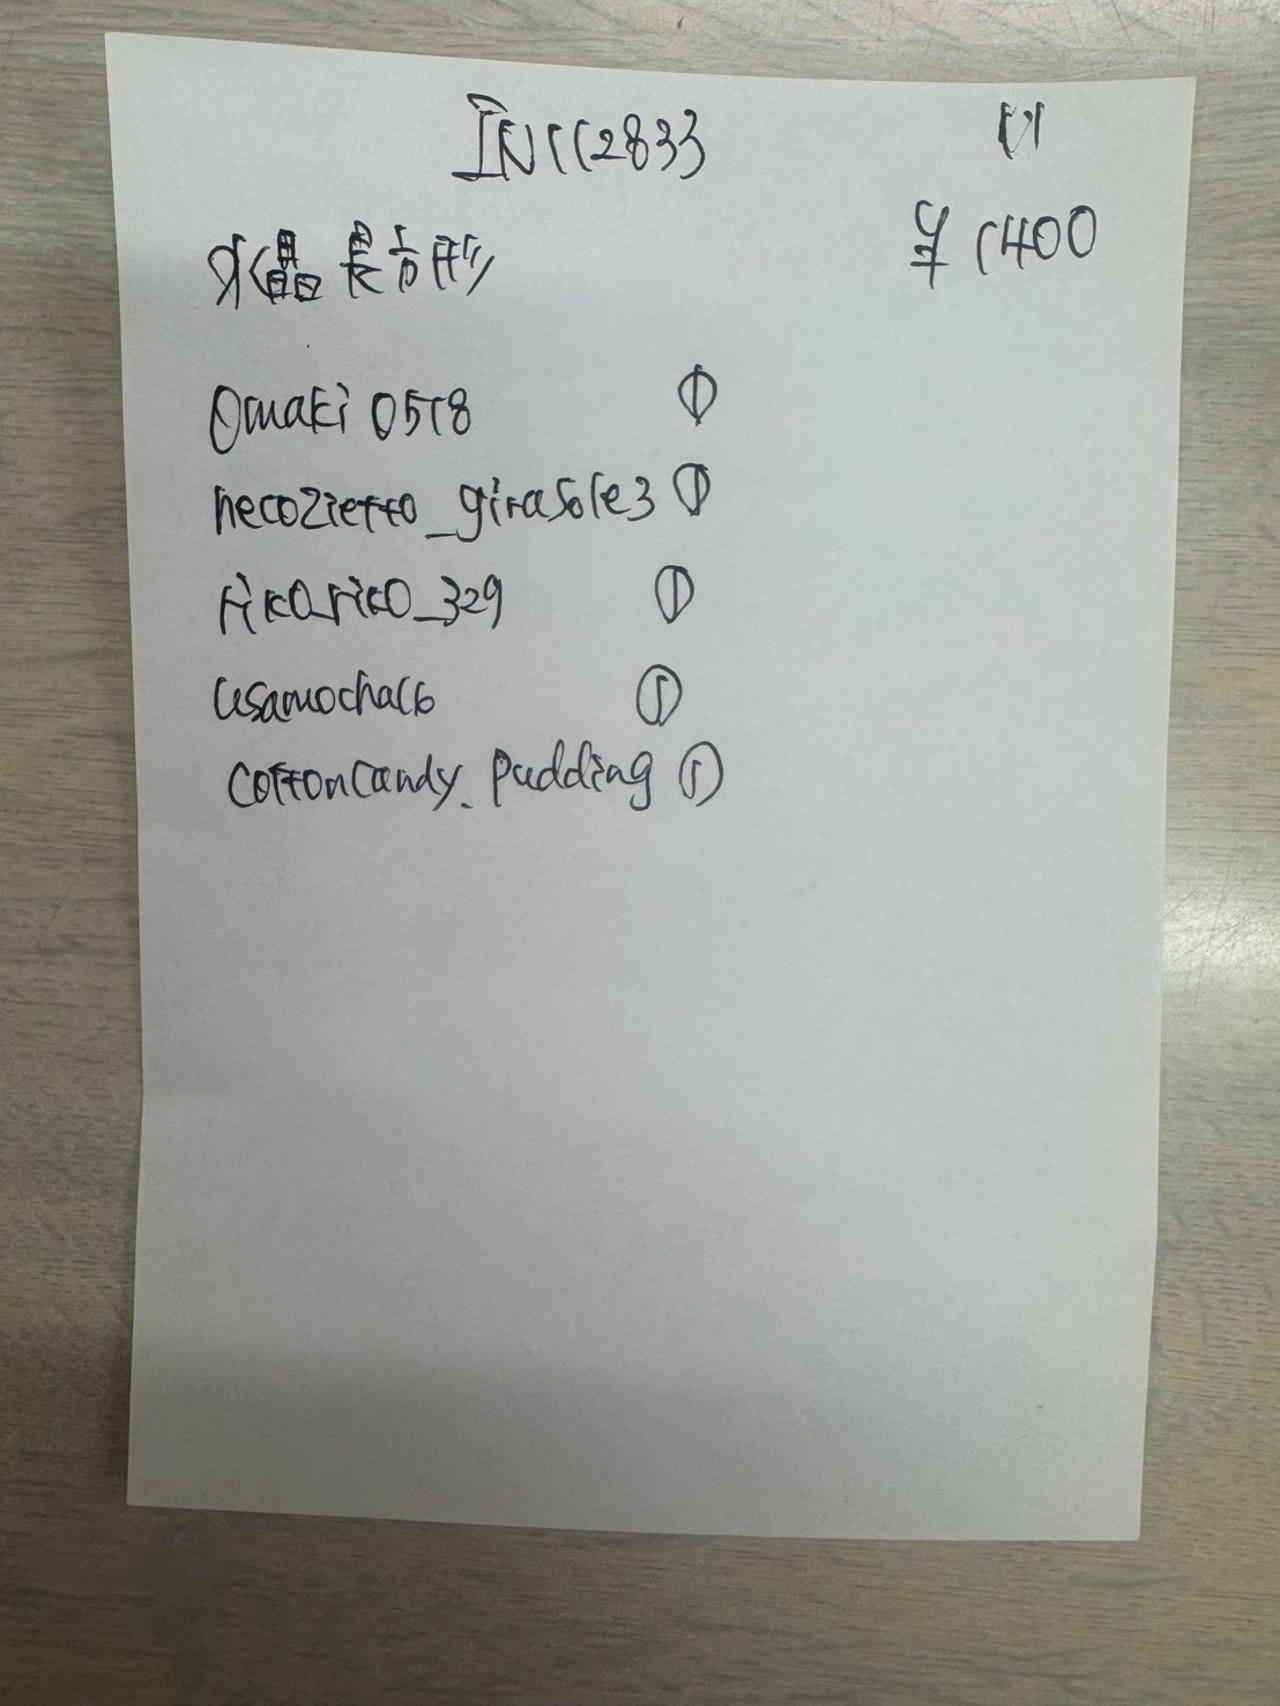 IN112833
水晶 長方形
¥ 1400
Omaki 0518 ①
necozietto_girasole3 ①
rico_rico_329 ①
usamocha16 ①
cottoncandy_pudding ①